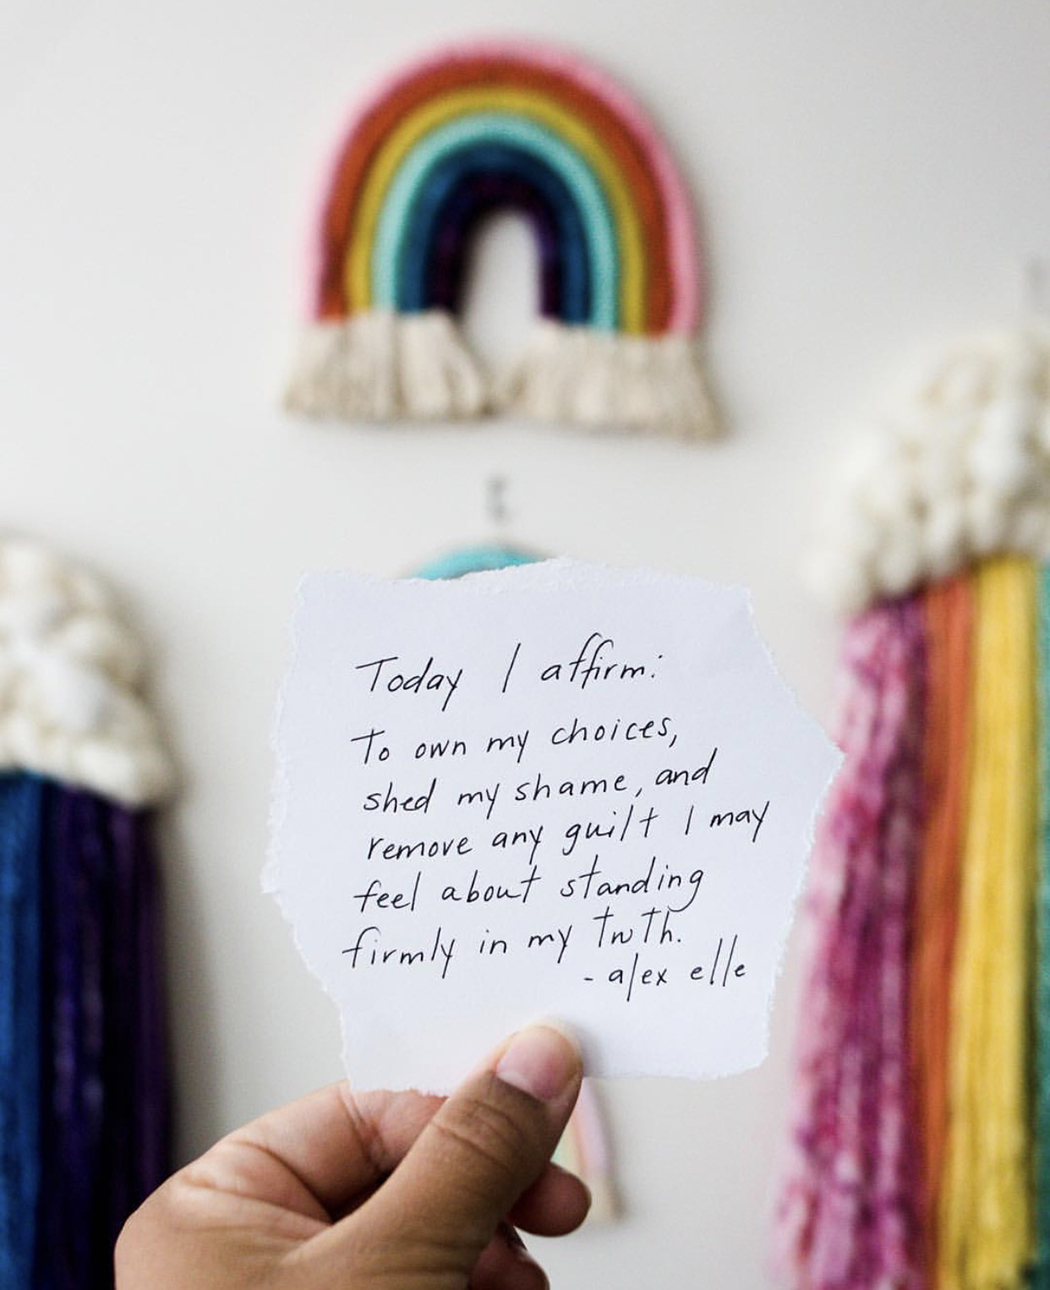 Today I affirm:
To own my choices,
shed my shame, and
remove any guilt I may
feel about standing
firmly in my truth.
- alex elle